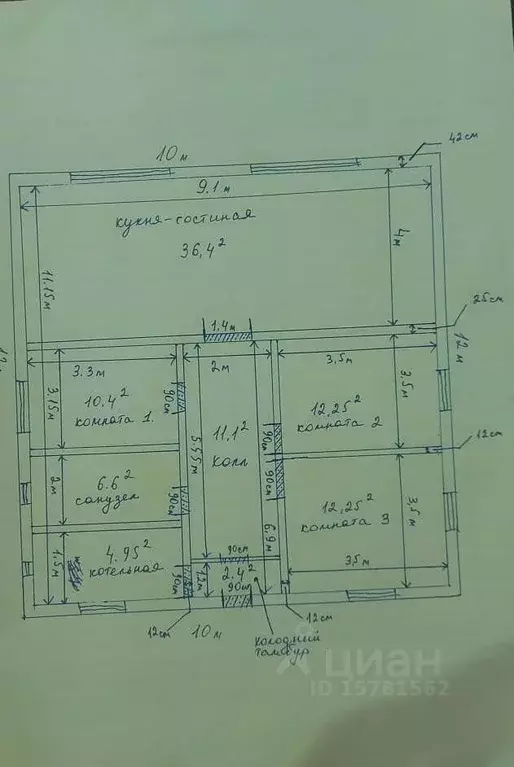 42см
10м
9.1м
кухня-гостиная
36,4²
4м
11.15м
25см
1.4м
12м
3.3м
2м
3,5м
3.15м
90см
10.4²
комната 1
5.55м
11.1²
холл
90см
12,25²
комната 2
3.5м
12см
2м
6.6²
санузел
90см
90см
6.9м
12,25²
комната 3
3,5м
1.5м
4.95²
котельная
90см
90см
1.2м
2.4²
90см
3,5м
12см
10м
холодный
тамбур
12см
циан
ID 15781562